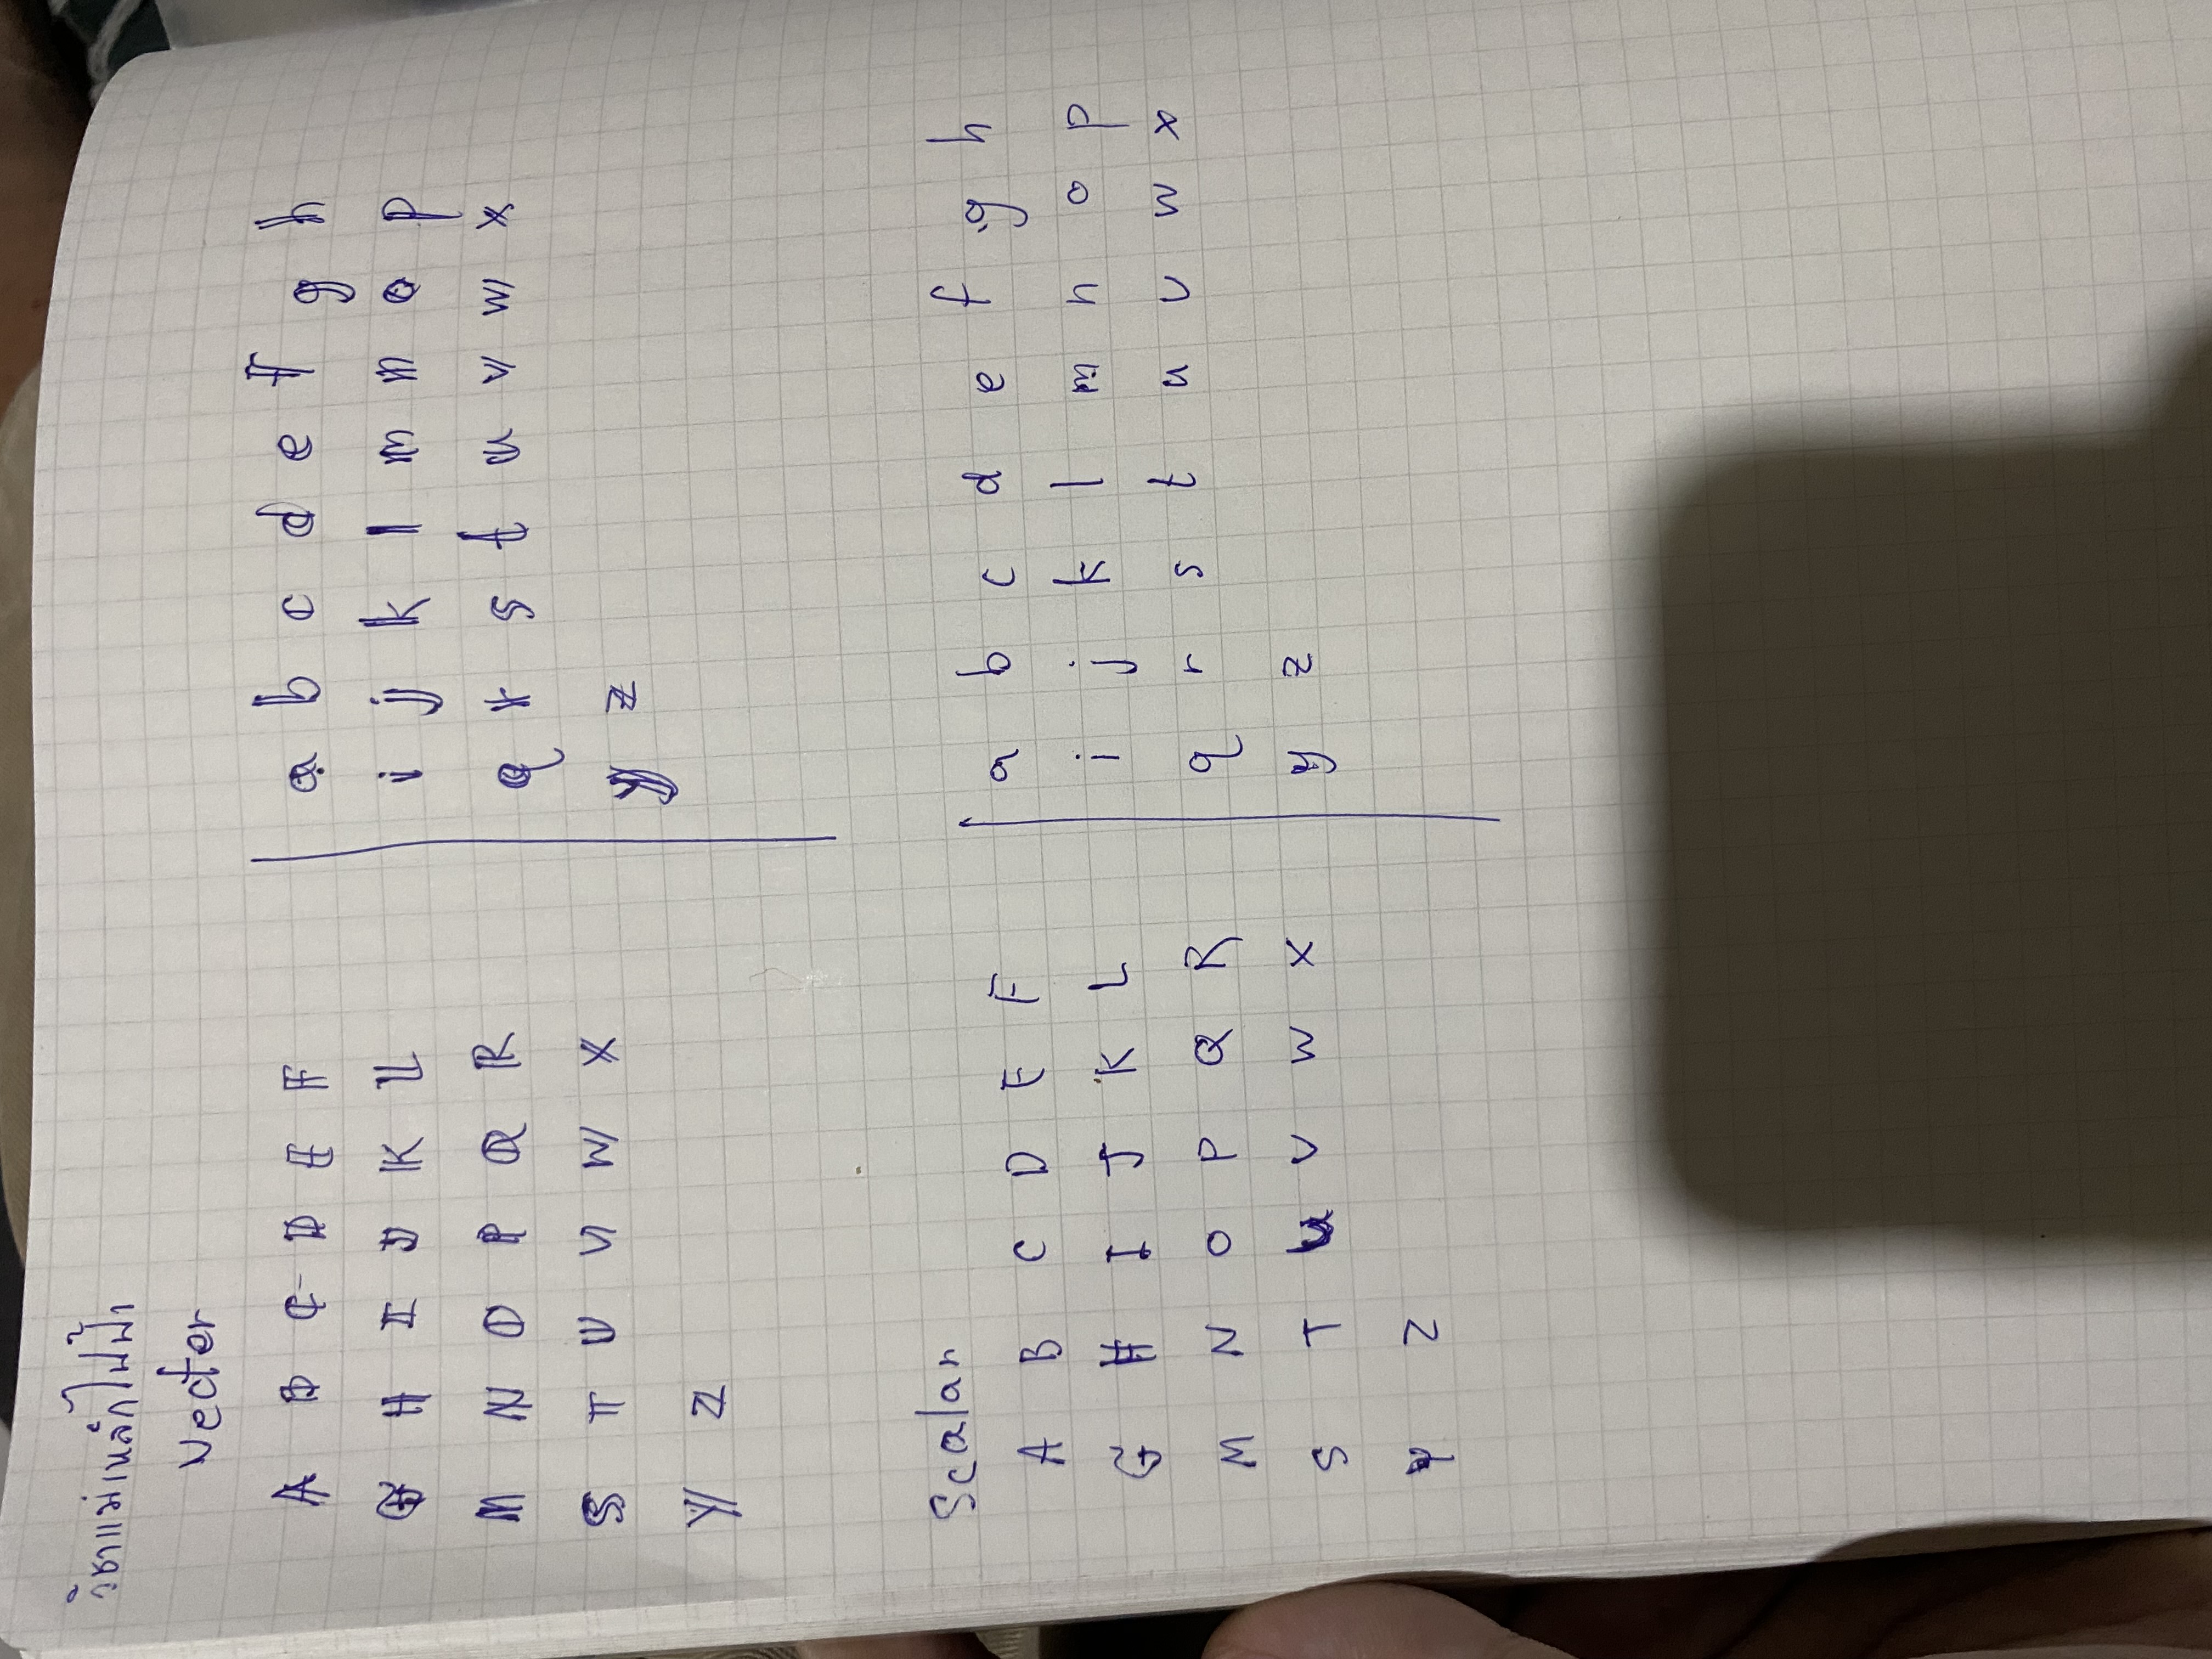 วิชาแม่เหล็กไฟฟ้า
Vecter
A B C D E F
G H I J K L
M N O P Q R
S T U V W X
Y Z
a b c d e f g h
i j k l m n o p
q r s t u v w x
y z
Scalar
A B C D E F
G H I J K L
M N O P Q R
S T U V W X
Y Z
a b c d e f g h
i j k l m n o p
q r s t u v w x
y z